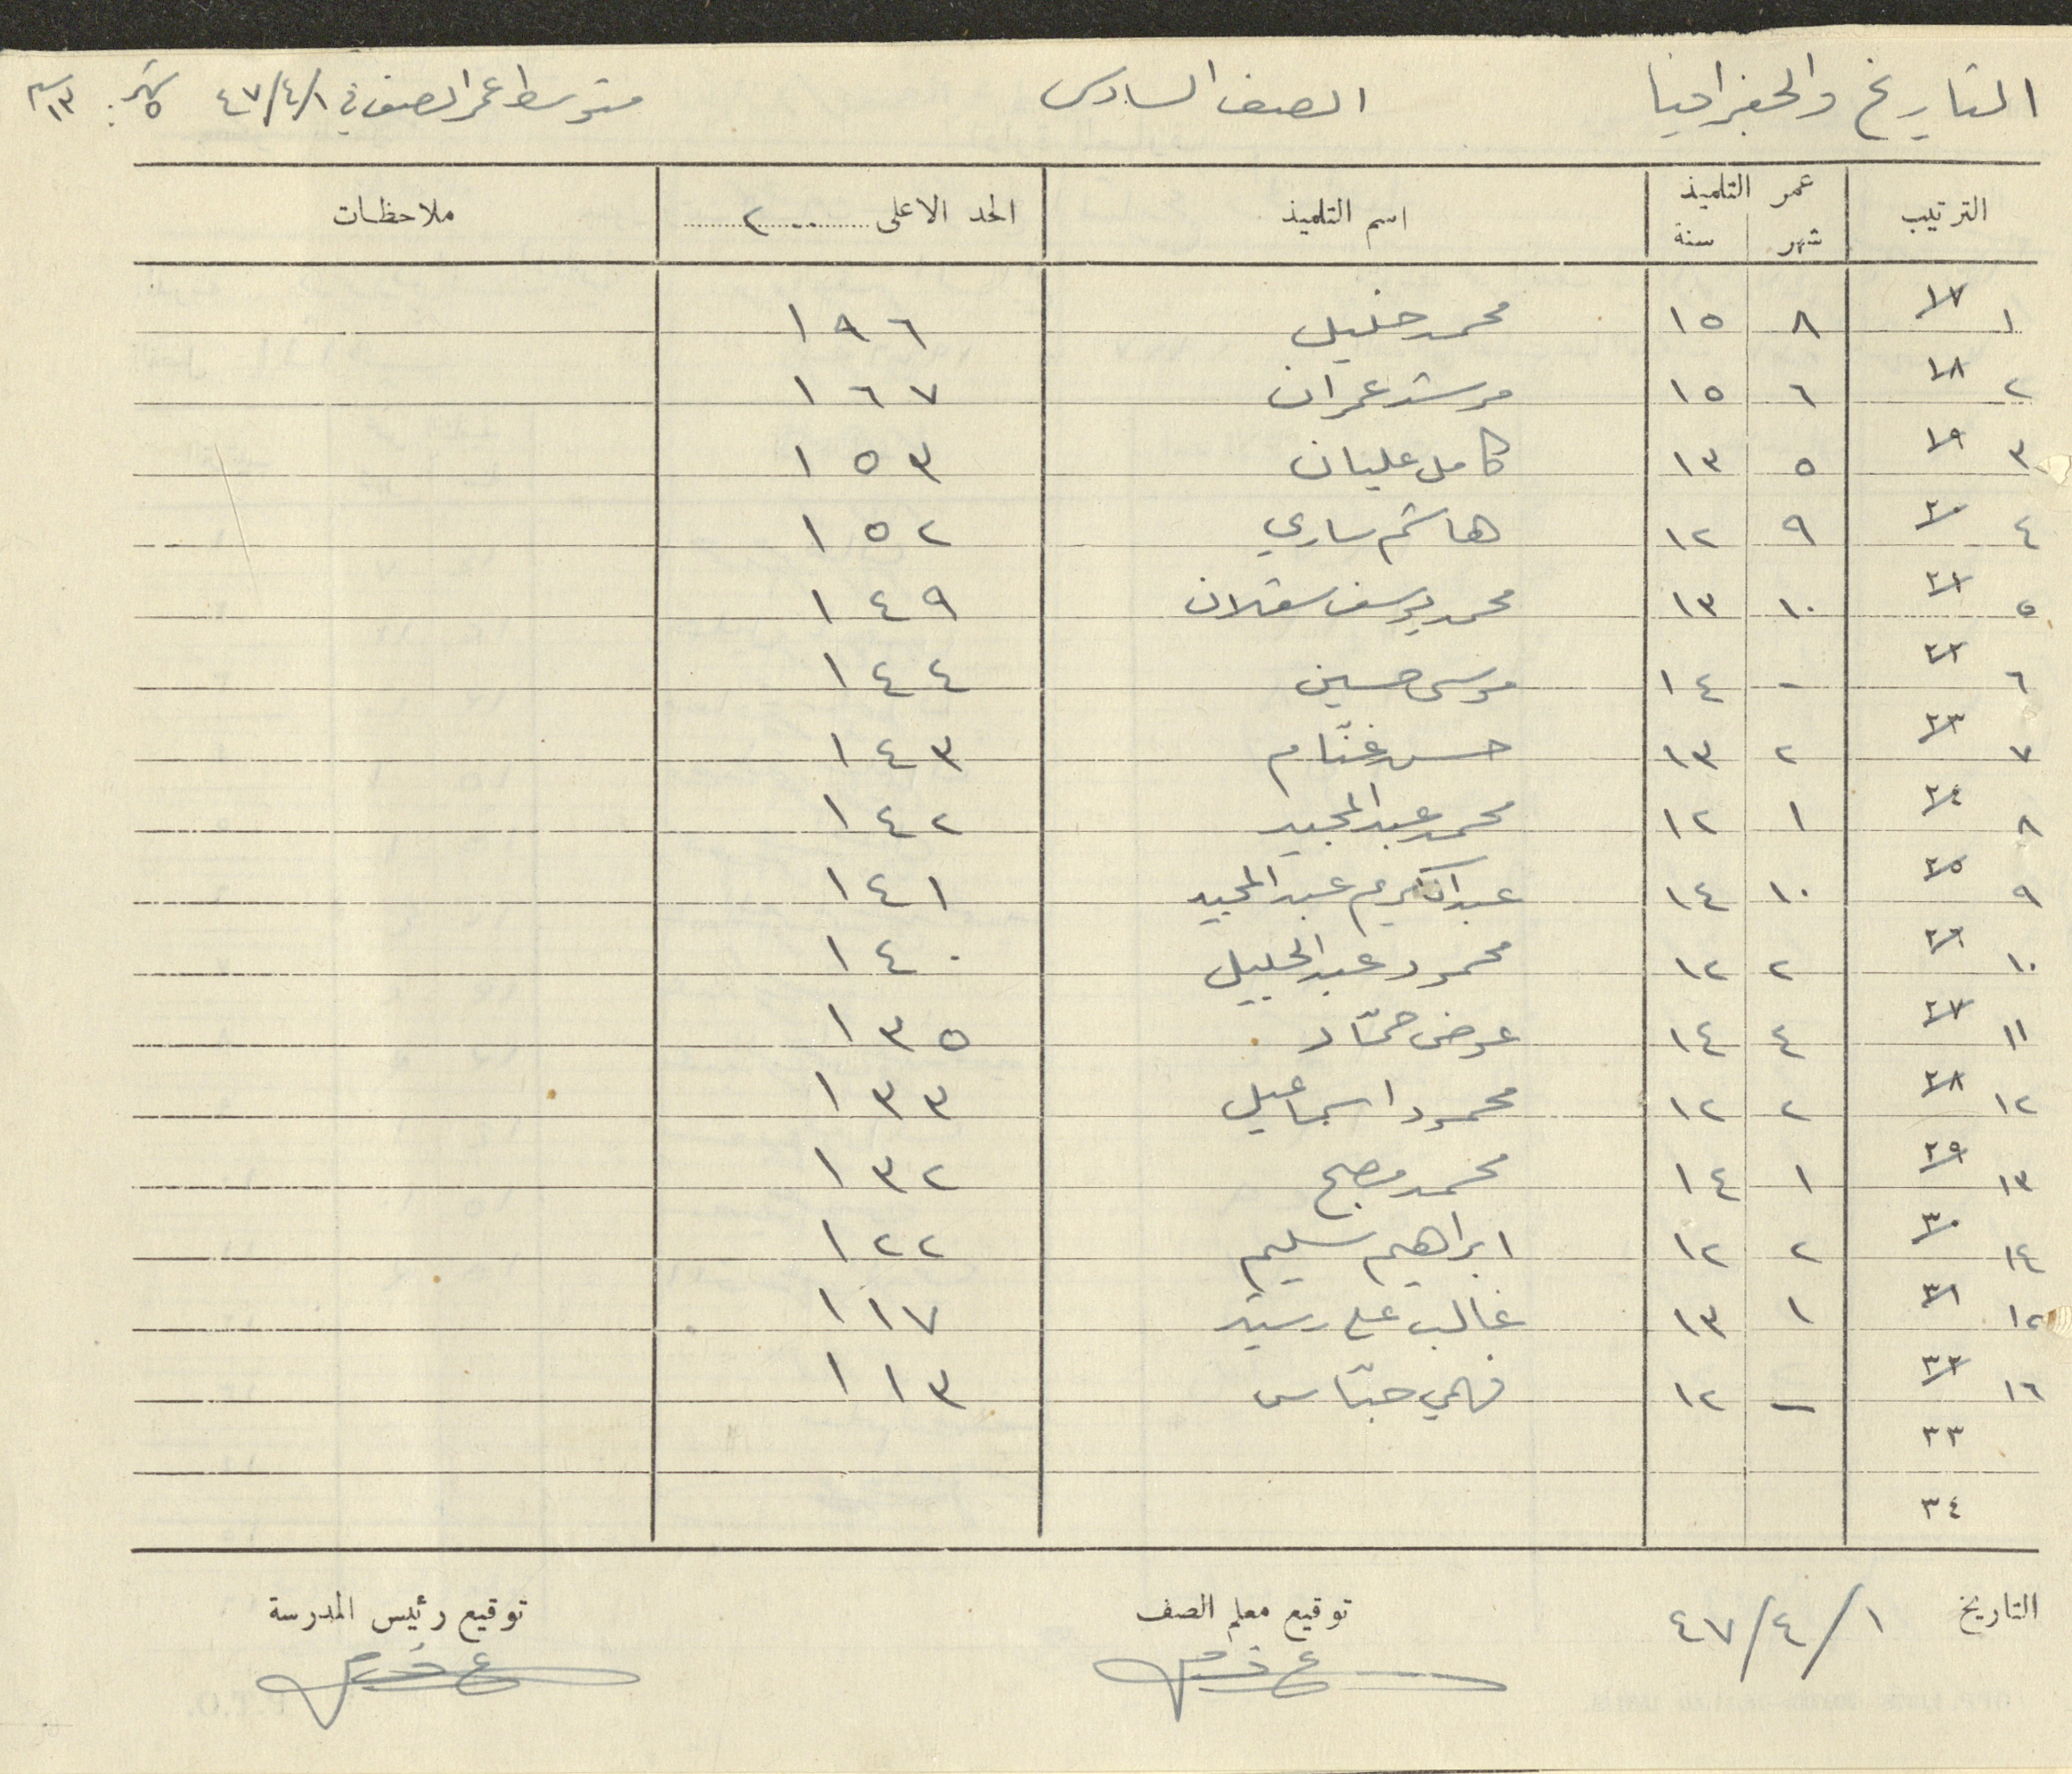 التاريخ والجغرافيا الصف السادس متوسط عمر الصف في ٤٧/٤/١ شهر ٥ سنة ١٣
الترتيب عمر التلميذ اسم التلميذ الحد الاعلى ٢٠٠ ملاحظات
شهر سنة
١ ١٧ ٨ ١٥ محمد خليل ١٩٦
٢ ١٨ ٦ ١٥ مرشد عمران ١٦٧
٣ ١٩ ٥ ١٣ كامل عليان ١٥٣
٤ ٢٠ ٩ ١٢ هاشم ساري ١٥٢
٥ ٢١ ١٠ ١٣ محمد يوسف سقلان ١٤٩
٦ ٢٢ - ١٤ موسى حسين ١٤٤
٧ ٢٣ ٢ ١٣ حسن غنّام ١٤٣
٨ ٢٤ ١ ١٢ محمد عبد المجيد ١٤٢
٩ ٢٥ ١٠ ١٤ عبد الكريم عبد المجيد ١٤١
١٠ ٢٦ ٢ ١٢ محمود عبد الجليل ١٤٠
١١ ٢٧ ٤ ١٤ عوض حمّاد ١٣٥
١٢ ٢٨ ٢ ١٢ محمود اسماعيل ١٣٣
١٣ ٢٩ ١ ١٤ محمد مصلح ١٣٢
١٤ ٣٠ ٢ ١٢ ابراهيم سليم ١٢٢
١٥ ٣١ ١ ١٣ غالب علي رشيد ١١٧
١٦ ٣٢ - ١٢ فهمي حبّاس ١١٣
٣٣
٣٤
التاريخ ٤٧/٤/١ توقيع معلم الصف توقيع رئيس المدرسة